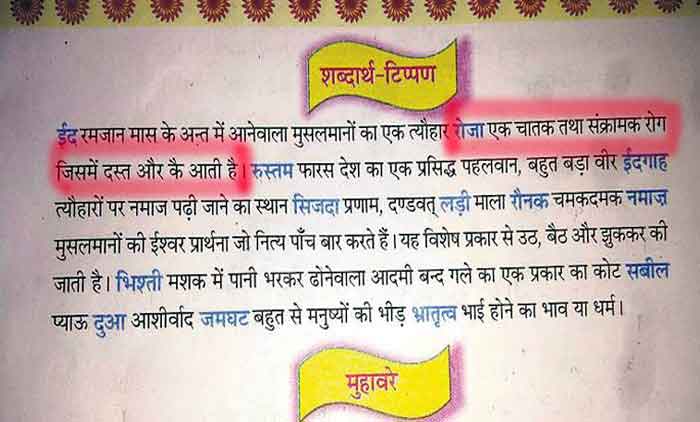 शब्दार्थ-टिप्पण
ईद रमजान मास के अन्त में आनेवाला मुसलमानों का एक त्यौहार रोजा एक चातक तथा संक्रामक रोग
जिसमें दस्त और कै आती है। रुस्तम फारस देश का एक प्रसिद्ध पहलवान, बहुत बड़ा वीर ईदगाह
त्यौहारों पर नमाज पढ़ी जाने का स्थान सिजदा प्रणाम, दण्डवत् लड़ी माला रौनक़ चमकदमक नमाज़
मुसलमानों की ईश्वर प्रार्थना जो नित्य पाँच बार करते हैं। यह विशेष प्रकार से उठ, बैठ और झुककर की
जाती है। भिश्ती मशक में पानी भरकर ढोनेवाला आदमी बन्द गले का एक प्रकार का कोट सबील
प्याऊ दुआ आशीर्वाद जमघट बहुत से मनुष्यों की भीड़ भ्रातृत्व भाई होने का भाव या धर्म।
मुहावरे